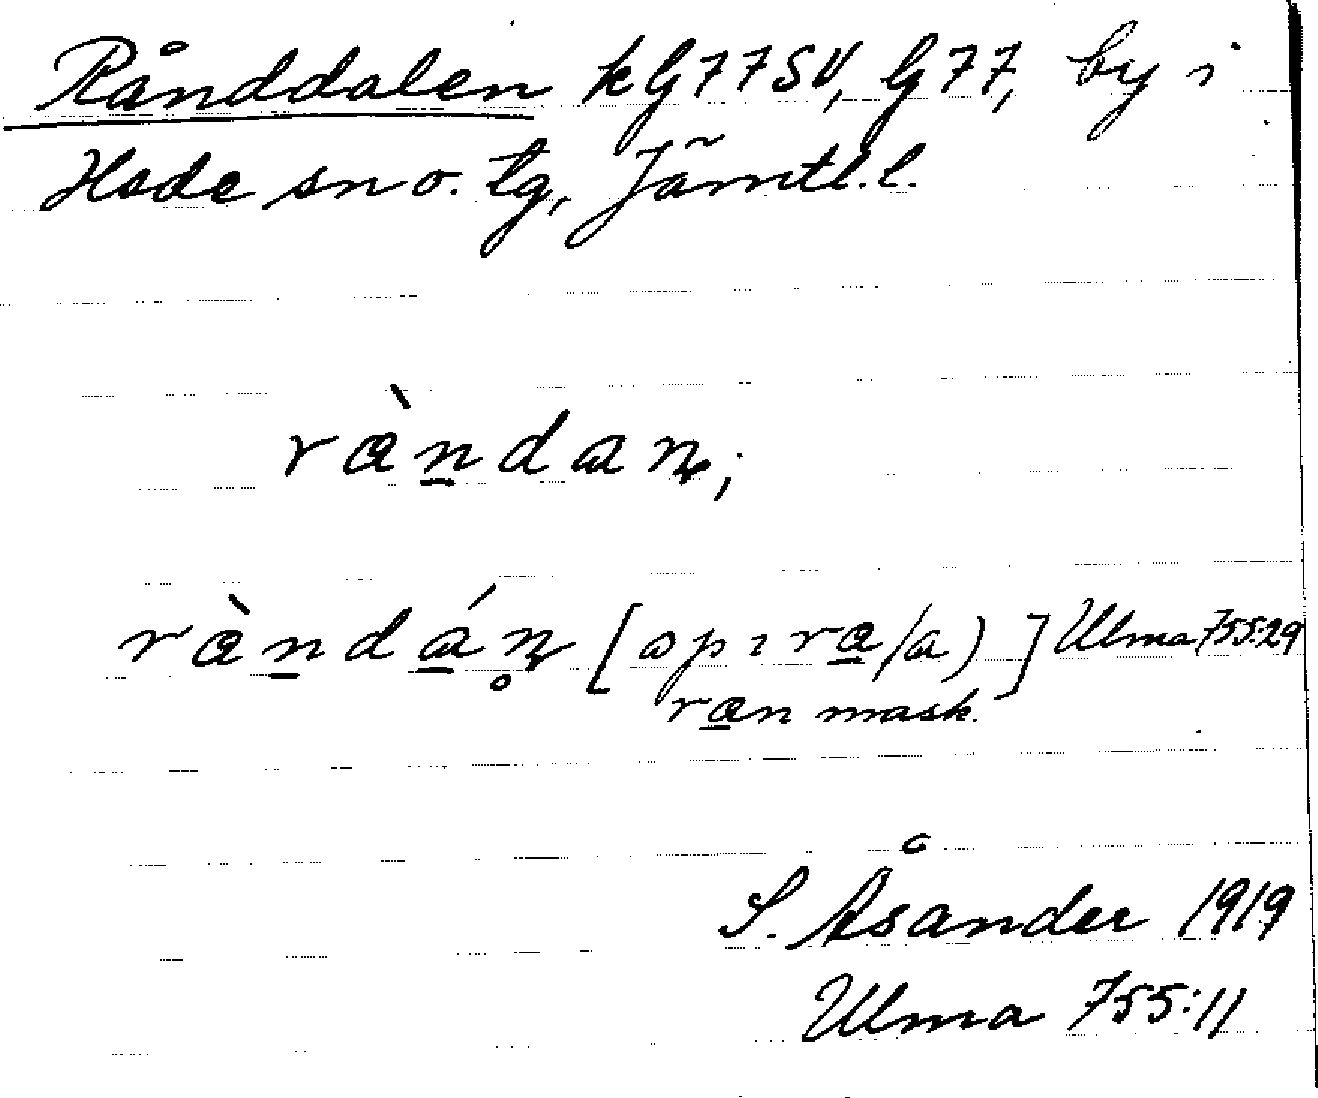 Rånddalen kG77SV, G77, by i
Hede sn o. tg, Jämtl.l.
ràn̲dan,;
ràn̲dá̲n̥ [spɿ ra̲/a) ] Ulma 755:29
ra̲n mask.
S. Åsander 1919
Ulma 755:11